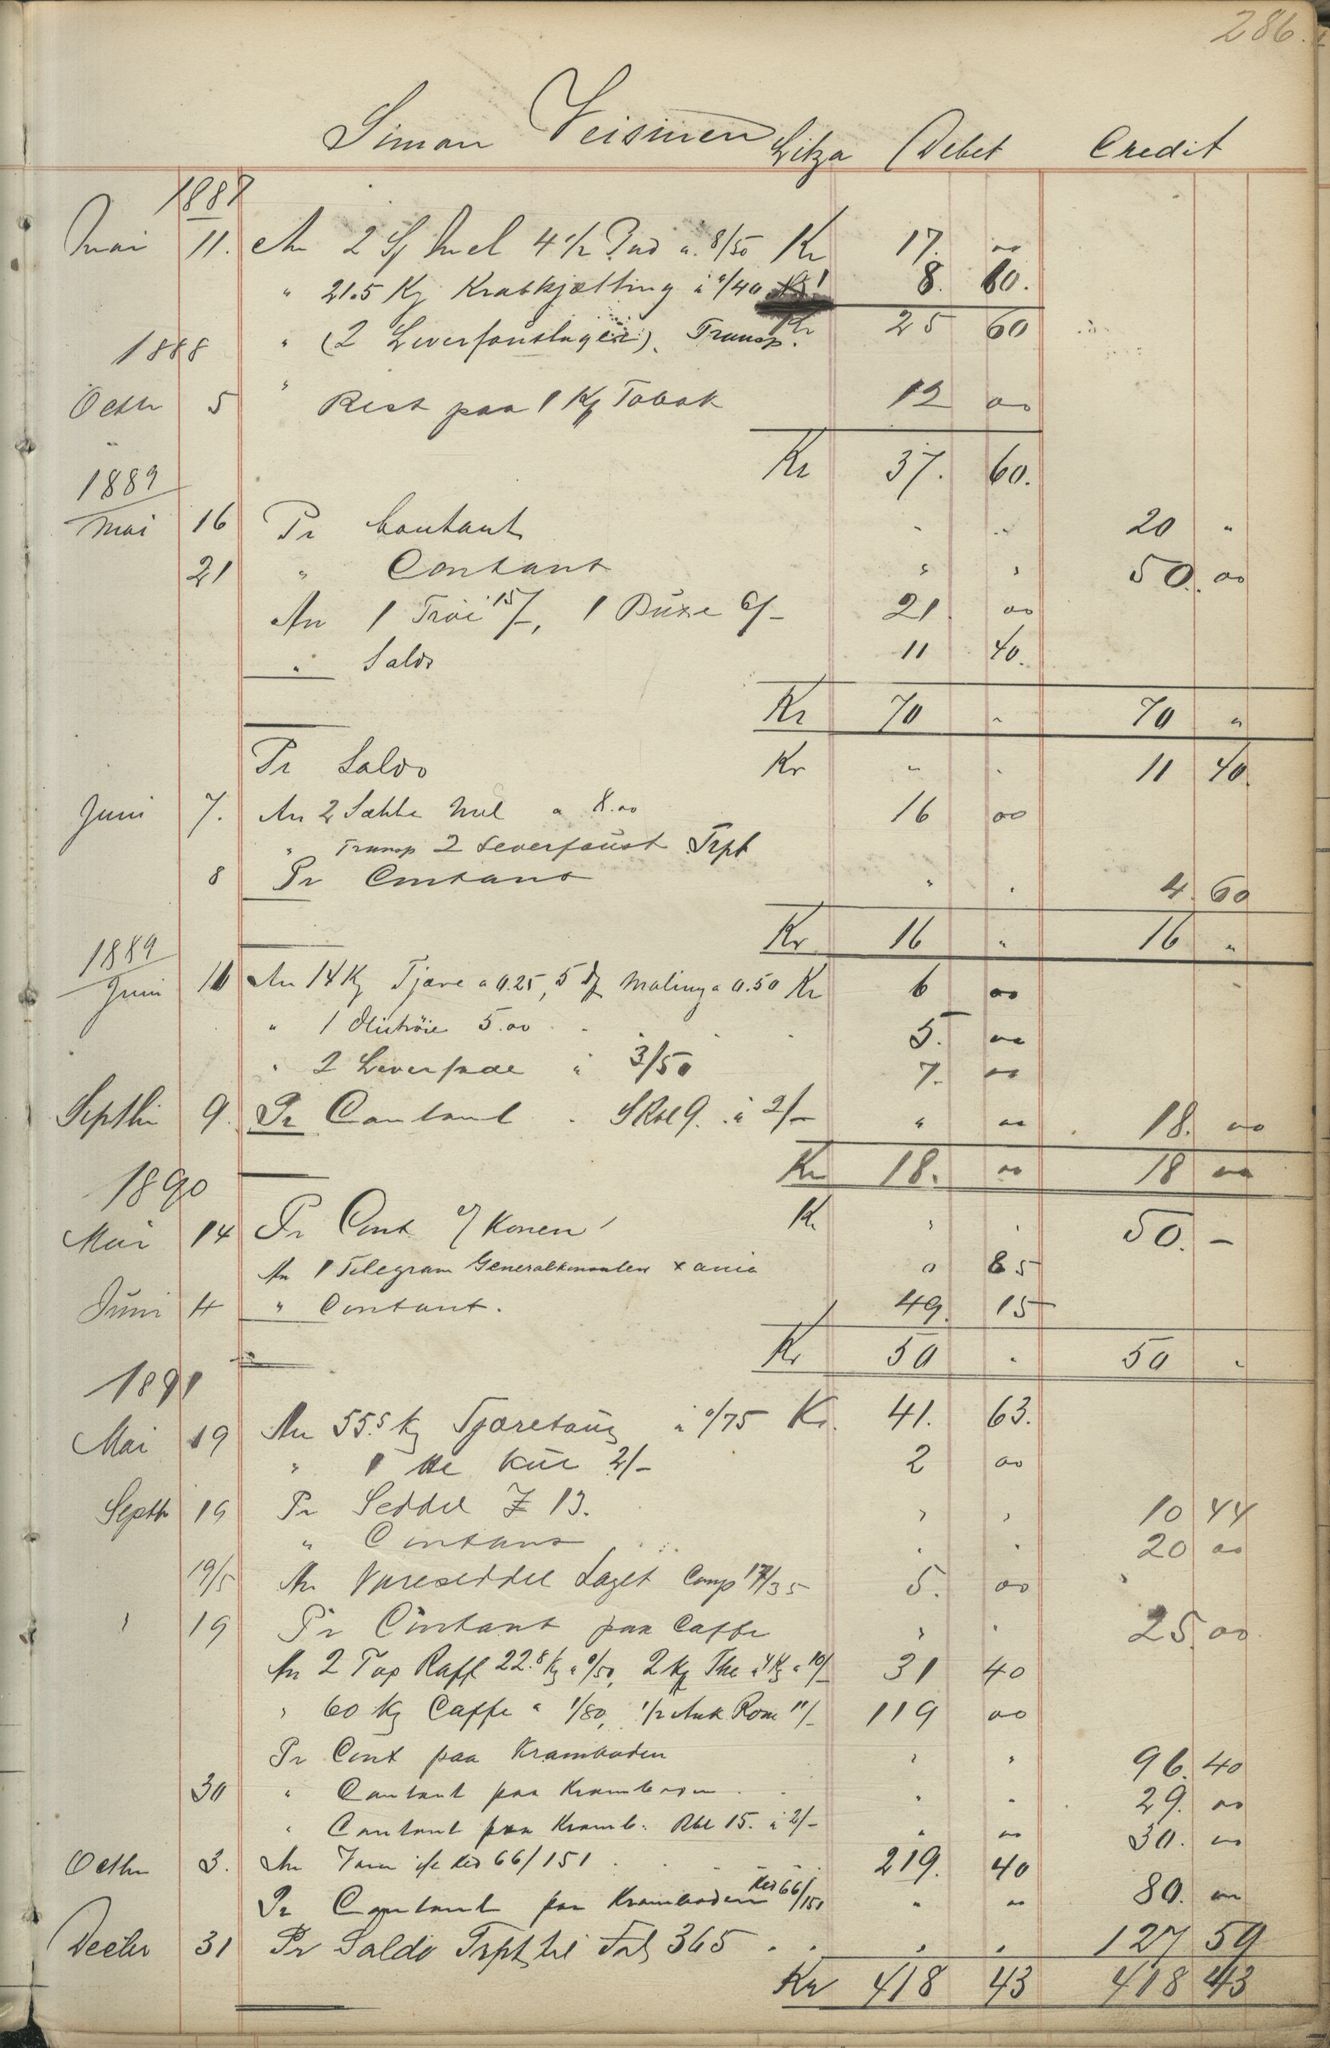 286.
Simon Veisinen Litza Debet Credit
1887
Mai 11. An 2 Sj Mel 4 1/2 Pud a. 8/50 Kr 17. 00
" 21.5 Kg Kratkjætting à 0/40 8. 60.
1888 " (2 Leverfoustager). Transp. Kr 25 60
Octbr 5 " Rest paa 1 Kg Tobak 12 00
Kr 37. 60.
1889
Mai 16 Pr Contant " " 20 "
21 " Contant " " 50. 00
An 1 Trøie 15/-, 1 Buxe 6/- 21 00
" Saldo 11 40.
Kr 70 " 70 "
Pr Saldo Kr " " 11 40.
Juni 7. An 2 Sække Mel a 8.00 16 00
" Transp 2 Leverfoust Trpt
8 Pr Contant " " 4. 60
Kr 16 " 16 "
1889
Juni 11 An 14 Kg Tjære a 0.25, 5 Maling a 0.50 Kr 6 00
" 1 5.00 5. 00
" 2 Leverfade à 3/50 7. 00
Septbr 9. Pr Contant. 9. à 2/- " 00 18. 00
Kr 18. 00 18 00
1890
Mai 14 Pr Cont v/ Konen Kr " " 50. -
An 1 Telegram Generalkonsulen Xania 0 85
Juni 4 " Contant. 49. 15
Kr 50 " 50 "
1891
Mai 19 An 55.5 Kg Tjæretoug à 0/75 Kr. 41. 63.
" 1 2/- 2 00
Septbr 19 Pr Seddel 13. " " 10 44
" Contant " " 20 00
19/5 An Vareseddel Laget Comp 17/35 5. 00
" 19 Pr Contant paa Caffe " " 25. 00
An 2 Top Raff 22.8 Kg a 0/50, 2 Kg The a 10/- 31 40
" 60 Kg Caffe a 1/80, 1/2 Ank Rom 11/- 119 00
Pr Cont paa Kramboden " " 96. 40
30 " Contant paa Kramboden " " 29. 00
" Contant paa Kramb. Rbl 15. à 2/- " 00 30. 00
Octbr 3. An Varer 66/151 219. 40
Pr Contant paa Kramboden 66/151 " 00 80. 00
Decbr 31 Pr Saldo Trpt til Fol 365 " " 127 59
Kr 418 43 418 43